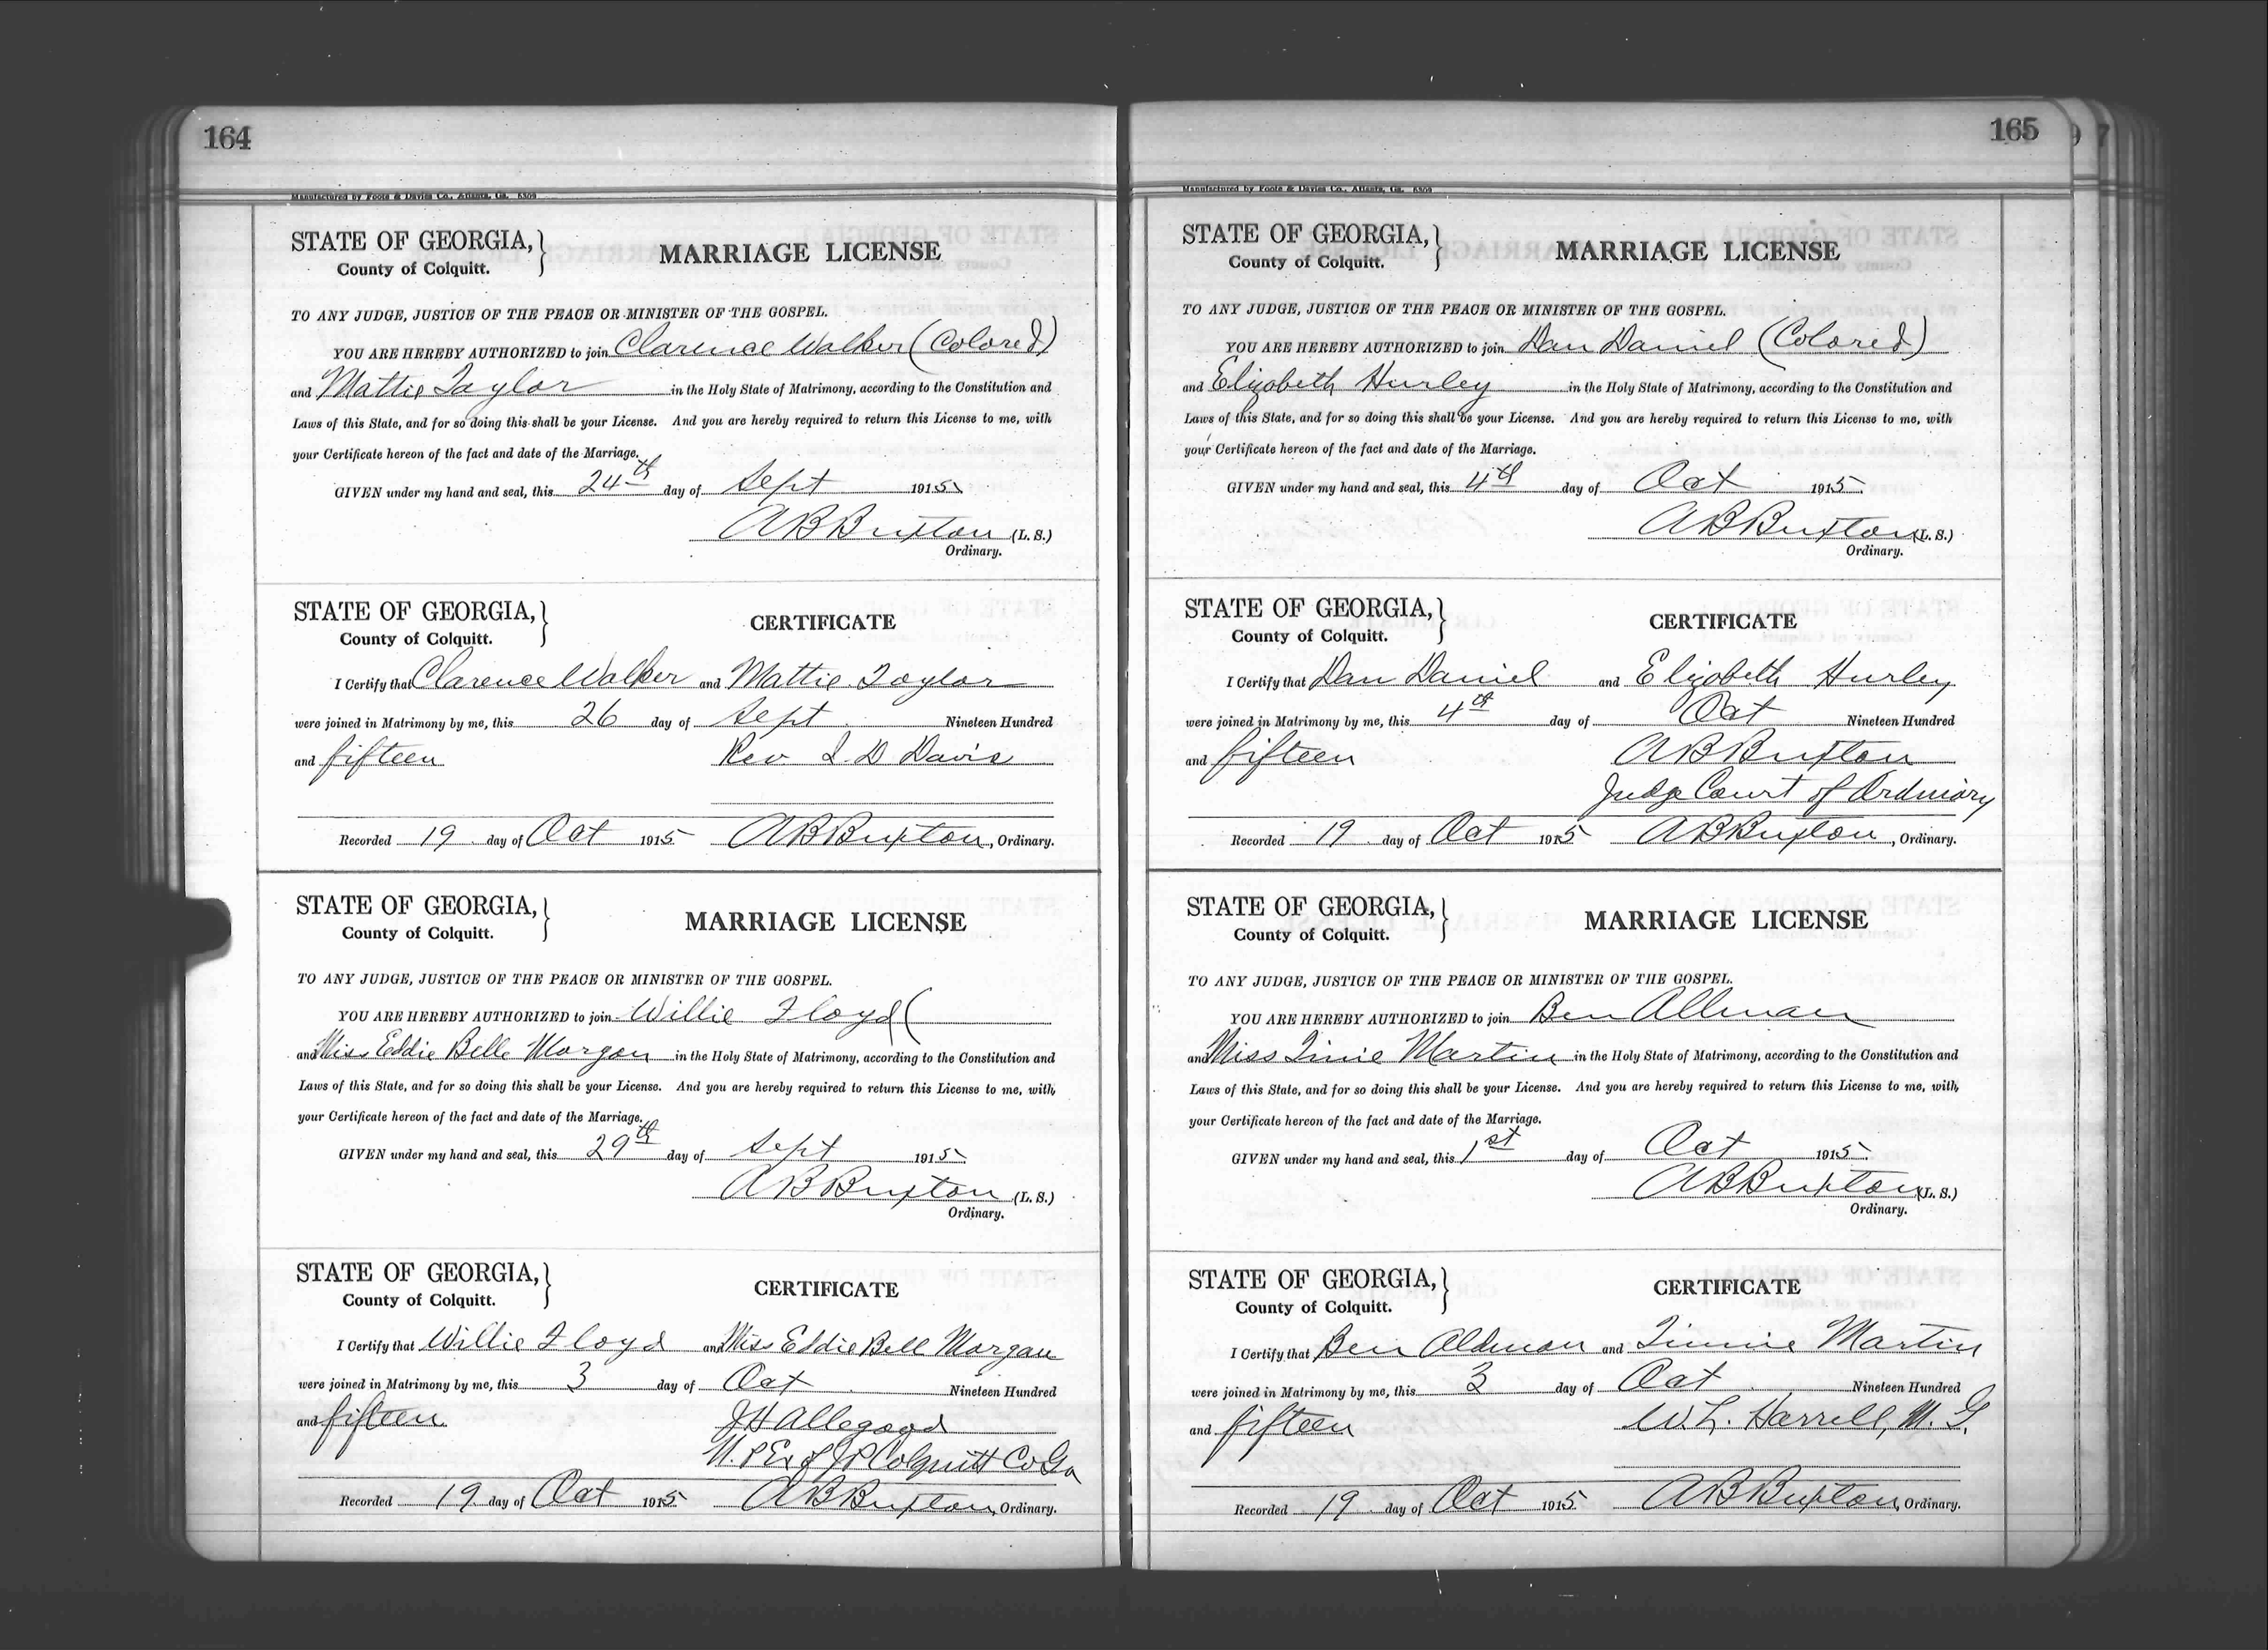 164
Manufactured by Foote & Davies Co., Atlanta, Ga. 6309
STATE OF GEORGIA,
County of Colquitt.
MARRIAGE LICENSE
TO ANY JUDGE, JUSTICE OF THE PEACE OR MINISTER OF THE GOSPEL.
YOU ARE HEREBY AUTHORIZED to join Clarence Walker (Colored)
and Mattie Taylor in the Holy State of Matrimony, according to the Constitution and
Laws of this State, and for so doing this shall be your License. And you are hereby required to return this License to me, with
your Certificate hereon of the fact and date of the Marriage.
GIVEN under my hand and seal, this 24th day of Sept 1915
A B Buxton (L. S.)
Ordinary.
STATE OF GEORGIA,
County of Colquitt.
CERTIFICATE
I Certify that Clarence Walker and Mattie Taylor
were joined in Matrimony by me, this 26 day of Sept Nineteen Hundred
and fifteen Rev. I. D Davis
Recorded 19 day of Oct 1915 A B Buxton, Ordinary.
STATE OF GEORGIA,
County of Colquitt.
MARRIAGE LICENSE
TO ANY JUDGE, JUSTICE OF THE PEACE OR MINISTER OF THE GOSPEL.
YOU ARE HEREBY AUTHORIZED to join Willie Floyd (
and Miss Eddie Belle Morgan in the Holy State of Matrimony, according to the Constitution and
Laws of this State, and for so doing this shall be your License. And you are hereby required to return this License to me, with
your Certificate hereon of the fact and date of the Marriage.
GIVEN under my hand and seal, this 29th day of Sept 1915
A B Buxton (L. S.)
Ordinary.
STATE OF GEORGIA,
County of Colquitt.
CERTIFICATE
I Certify that Willie Floyd and Miss Eddie Bell Morgan
were joined in Matrimony by me, this 3 day of Oct Nineteen Hundred
and fifteen J H Allegood
N. P Ex of J P Colquitt Co Ga
Recorded 19 day of Oct 1915 A B Buxton, Ordinary.
165
Manufactured by Foote & Davies Co., Atlanta, Ga. 6309
STATE OF GEORGIA,
County of Colquitt.
MARRIAGE LICENSE
TO ANY JUDGE, JUSTICE OF THE PEACE OR MINISTER OF THE GOSPEL.
YOU ARE HEREBY AUTHORIZED to join Dan Daniel (Colored)
and Elizabeth Hurley in the Holy State of Matrimony, according to the Constitution and
Laws of this State, and for so doing this shall be your License. And you are hereby required to return this License to me, with
your Certificate hereon of the fact and date of the Marriage.
GIVEN under my hand and seal, this 4th day of Oct 1915
A B Buxton (L. S.)
Ordinary.
STATE OF GEORGIA,
County of Colquitt.
CERTIFICATE
I Certify that Dan Daniel and Elizabeth Hurley
were joined in Matrimony by me, this 4th day of Oct Nineteen Hundred
and fifteen A B Buxton
Judge Court of Ordinary
Recorded 19 day of Oct 1915 A B Buxton, Ordinary.
STATE OF GEORGIA,
County of Colquitt.
MARRIAGE LICENSE
TO ANY JUDGE, JUSTICE OF THE PEACE OR MINISTER OF THE GOSPEL.
YOU ARE HEREBY AUTHORIZED to join Ben Allman
and Miss Martin in the Holy State of Matrimony, according to the Constitution and
Laws of this State, and for so doing this shall be your License. And you are hereby required to return this License to me, with
your Certificate hereon of the fact and date of the Marriage.
GIVEN under my hand and seal, this 1st day of Oct 1915
A B Buxton (L. S.)
Ordinary.
STATE OF GEORGIA,
County of Colquitt.
CERTIFICATE
I Certify that Ben Aldman and Martin
were joined in Matrimony by me, this 3 day of Oct Nineteen Hundred
and fifteen W. L. Harrell, M. G.
Recorded 19 day of Oct 1915 A B Buxton, Ordinary.